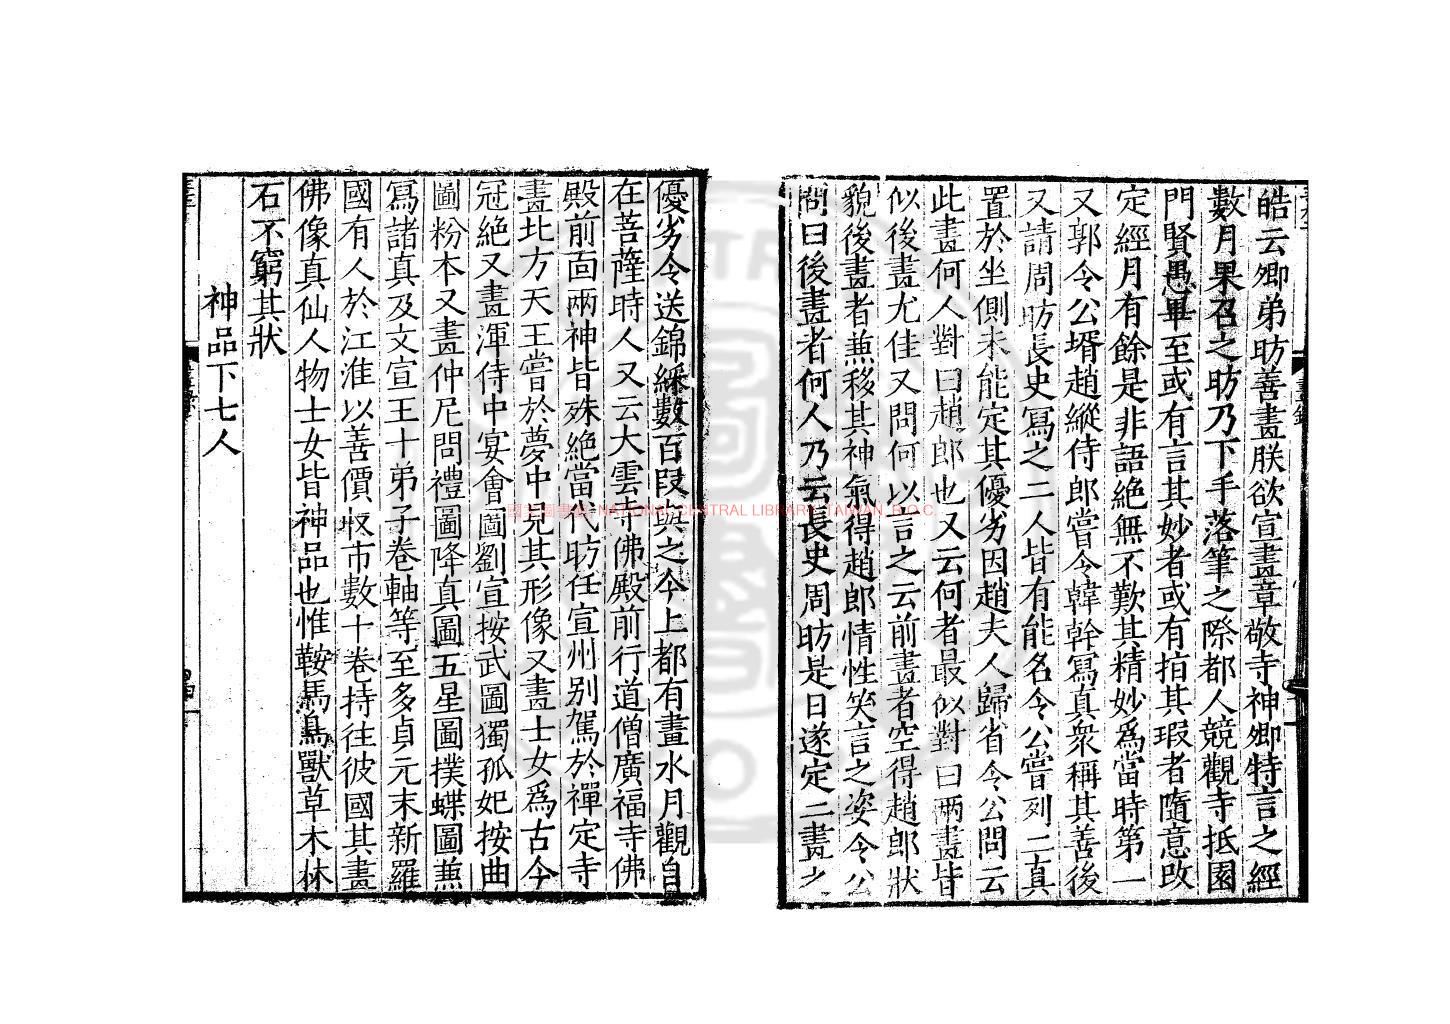 皓云卿弟昉善畫朕欲宣畫章敬寺神卿特言之經
數月果召之昉乃下手落筆之際都人競觀寺抵園
門賢愚畢至或有言其妙者或有拍其瑕者隨意改
定經月有餘是非語絕無不歎其精妙爲當時第一
又郭令公壻趙縱侍郎嘗令韓幹寫真衆稱其善後
又請周昉長史寫之二人皆有能名令公嘗列二真
置於坐側未能定其優劣因趙夫人歸省令公問云
此畫何人對曰趙郎也又云何者最似對曰兩畫皆
似後畫尤佳又問何以言之云前畫者空得趙郎狀
貌後畫者兼移其神氣得趙郎情性笑言之姿令公
問曰後畫者何人乃云長史周昉是日遂定二畫之
優劣令送錦綵數百段與之今上都有畫水月觀自
在菩薩時人又云大雲寺佛殿前行道僧廣福寺佛
殿前面兩神皆殊絕當代昉任宣州別駕於禪定寺
畫北方天王嘗於夢中見其形像又畫士女爲古今
冠絕又畫渾侍中宴會圖劉宣按武圖獨孤妃按曲
圖粉本又畫仲尼問禮圖降真圖五星圖撲蝶圖兼
寫諸真及文宣王十弟子卷軸等至多貞元末新羅
國有人於江淮以善價收市數十卷持往彼國其畫
佛像真仙人物士女皆神品也惟鞍馬鳥獸草木林
石不窮其狀
神品下七人
國家圖書館 NATIONAL CENTRAL LIBRARY, TAIWAN, R.O.C.